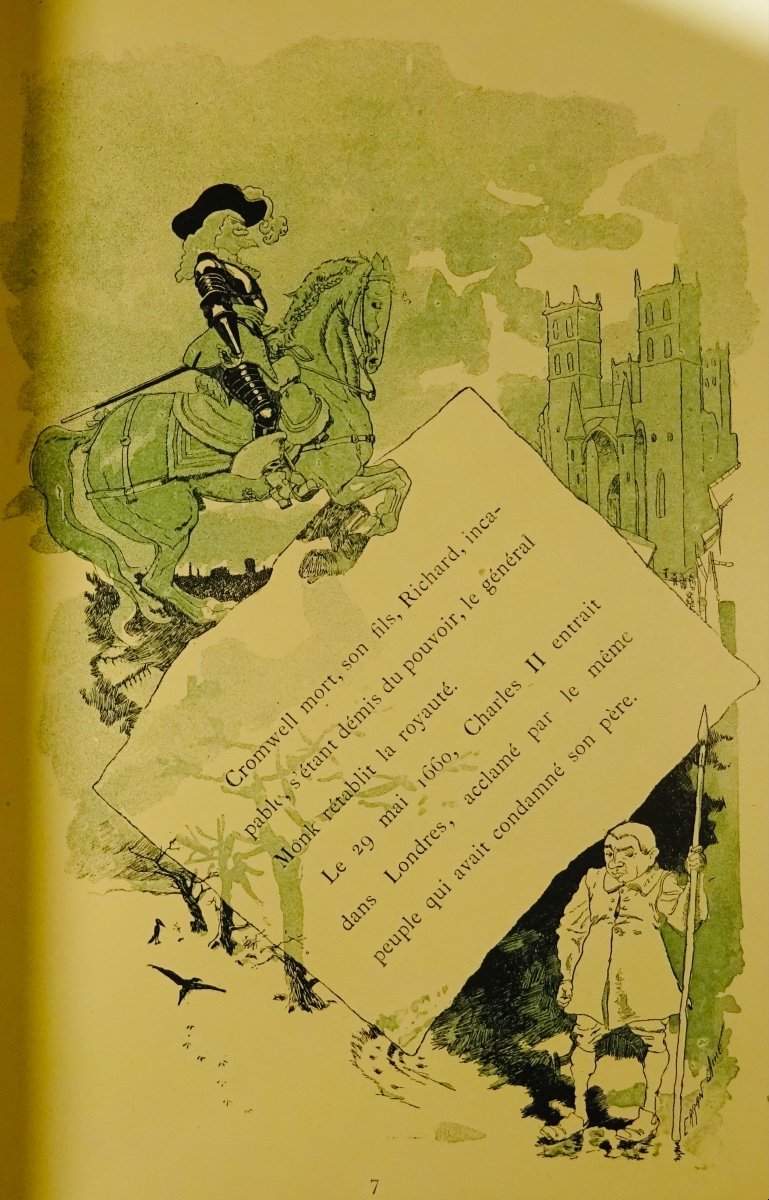 Cromwell mort, son fils, Richard, inca-
pable, s'étant démis du pouvoir, le général
Monk rétablit la royauté.
Le 29 mai 1660, Charles II entrait
dans Londres, acclamé par le même
peuple qui avait condamné son père.
7